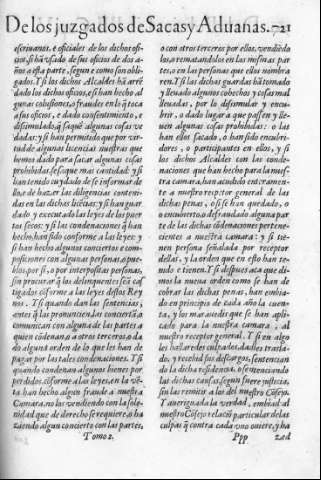 De los juzgados de Sacas y Aduanas. 721
escriuanos, e oficiales de los dichos ofi-
cios, si hã vsado de sus oficios de dos a-
ños a esta parte, segun e como son obli-
gados. Y si los dichos Alcaldes hã arrẽ
dado los dichos oficios, e si han hecho al
gunas cohusiones, o fraudes en lo q̃ toca
a sus oficios, e dado consentimiento, e
dissimulado, q̃ saquẽ algunas cosas ve
dadas: y si han permitido que por vir-
tud de algunas licencias nuestras que
hemos dado para sacar algunas cosas
prohibidas, se saque mas cantidad: y si
han tenido cuydado de se informar de
ello, de hazer las diligencias conteni-
das en las dichas licẽcias: y si han guar
dado y executado las leyes de los puer
tos secos: y si las condenaciones q̃ han
hecho, han sido conforme a las leyes: y
si han hecho algunos conciertos e com-
posiciones con algunas personas, o pue-
blos, por si, o por interpositas personas,
sin procurar q̃ los delinquentes seã cas
tigados cõforme a las leyes destos Rey
nos. Y si quando dan las sentencias,
antes q̃ las pronuncien, las conciertã, o
comunican con alguna de las partes a
quien cõdenan, o a otros terceros, o da
do alguna orden de lo que les han de
pagar por las tales condenaciones. Y si
quando condenan algunos bienes por
perdidos, cõforme a las leyes, en la vẽ-
ta han hecho algun fraude a nuestra
Camara, no los vendiendo con la sole-
nidad que de derecho se requiere, o ha
ziendo algun concierto con las partes,
Tomo 2.
o con otros terceros por ellos, vendiẽdo
los, o rematandolos en las mismas par
tes, o en las personas que ellos nombra
ren. Y si las dichas guardas hã tomado
y lleuado algunos cohechos y cosas mal
lleuadas, por lo dissimular y encu-
brir, o dado lugar a que passen y lle-
uen algunas cosas prohibidas: o las
han ellos sacado, o han sido encubri-
dores, o participantes en ellos, y si
los dichos Alcaldes con las conde-
naciones que han hecho para la nues-
tra camara, han acudido enteramen-
te a nuestro receptor general de las
dichas penas, o si se han quedado, o
o encubierto, o defraudado alguna par
te de las dichas cõdenaciones pertene-
cientes a nuestra camara: y si tie-
nen persona señalada por receptor
dellas, y la orden que en esso han te-
nido e tienen. Y si despues aca que di-
mos la nueua orden como se han de
cobrar las dichas penas, han embia-
do en principio de cada año la cuen-
ta, y los marauedis que se han apli-
cado para la nuestra camara, al
nuestro receptor general. Y si en al-
go hallaredes culpados, dadles trasla-
do, y recebid sus descargos, sentencian
do la dicha residencia, o sentenciando
las dichas causas, segun fuere justicia,
sin las remitir a los del nuestro Cõsejo.
Y aueriguada la verdad, embiad al
nuestro Cõsejo relaciõ particular de las
culpas q̃ contra cada vno ouiere, y ha
Ppp zed